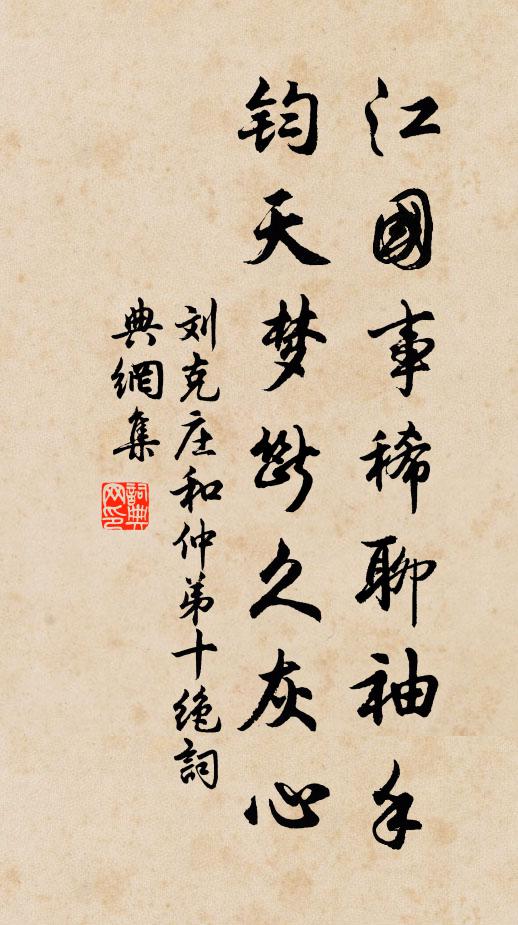 江國事稀聊袖手
钧天梦断久灰心
刘克庄和仲弟十绝词
典網集
詞典网印